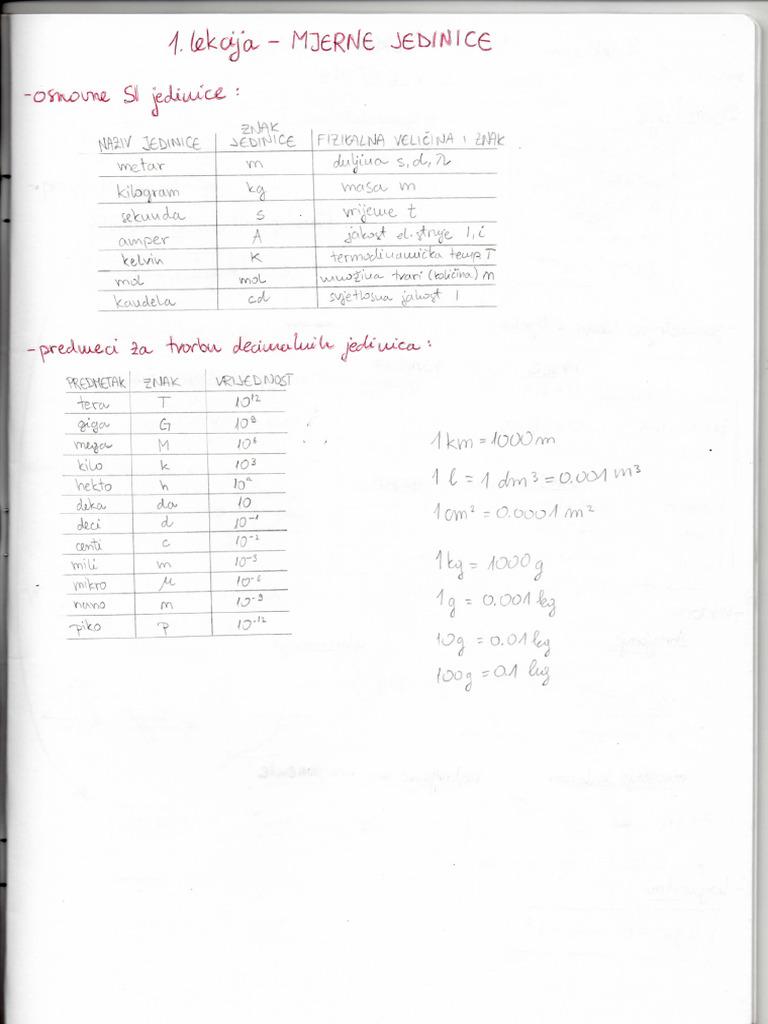 1. lekcija – MJERNE JEDINICE
-osnovne SI jedinice:
NAZIV JEDINICE ZNAK JEDINICE FIZIKALNA VELIČINA I ZNAK
metar m duljina s, d, r
kilogram kg masa m
sekunda s vrijeme t
amper A jakost el. struje I, i
kelvin K termodinamička temp T
mol mol množina tvari (količina) n
kandela cd svjetlosna jakost I
-predmeci za tvorbu decimalnih jedinica:
PREDMETAK ZNAK VRIJEDNOST
tera T 10¹²
giga G 10⁹
mega M 10⁶
kilo k 10³
hekto h 10²
deka da 10
deci d 10⁻¹
centi c 10⁻²
mili m 10⁻³
mikro μ 10⁻⁶
nano n 10⁻⁹
piko p 10⁻¹²
1 km = 1000 m
1 l = 1 dm³ = 0.001 m³
1 cm² = 0.0001 m²
1 kg = 1000 g
1 g = 0.001 kg
10g = 0.01 kg
100g = 0.1 kg